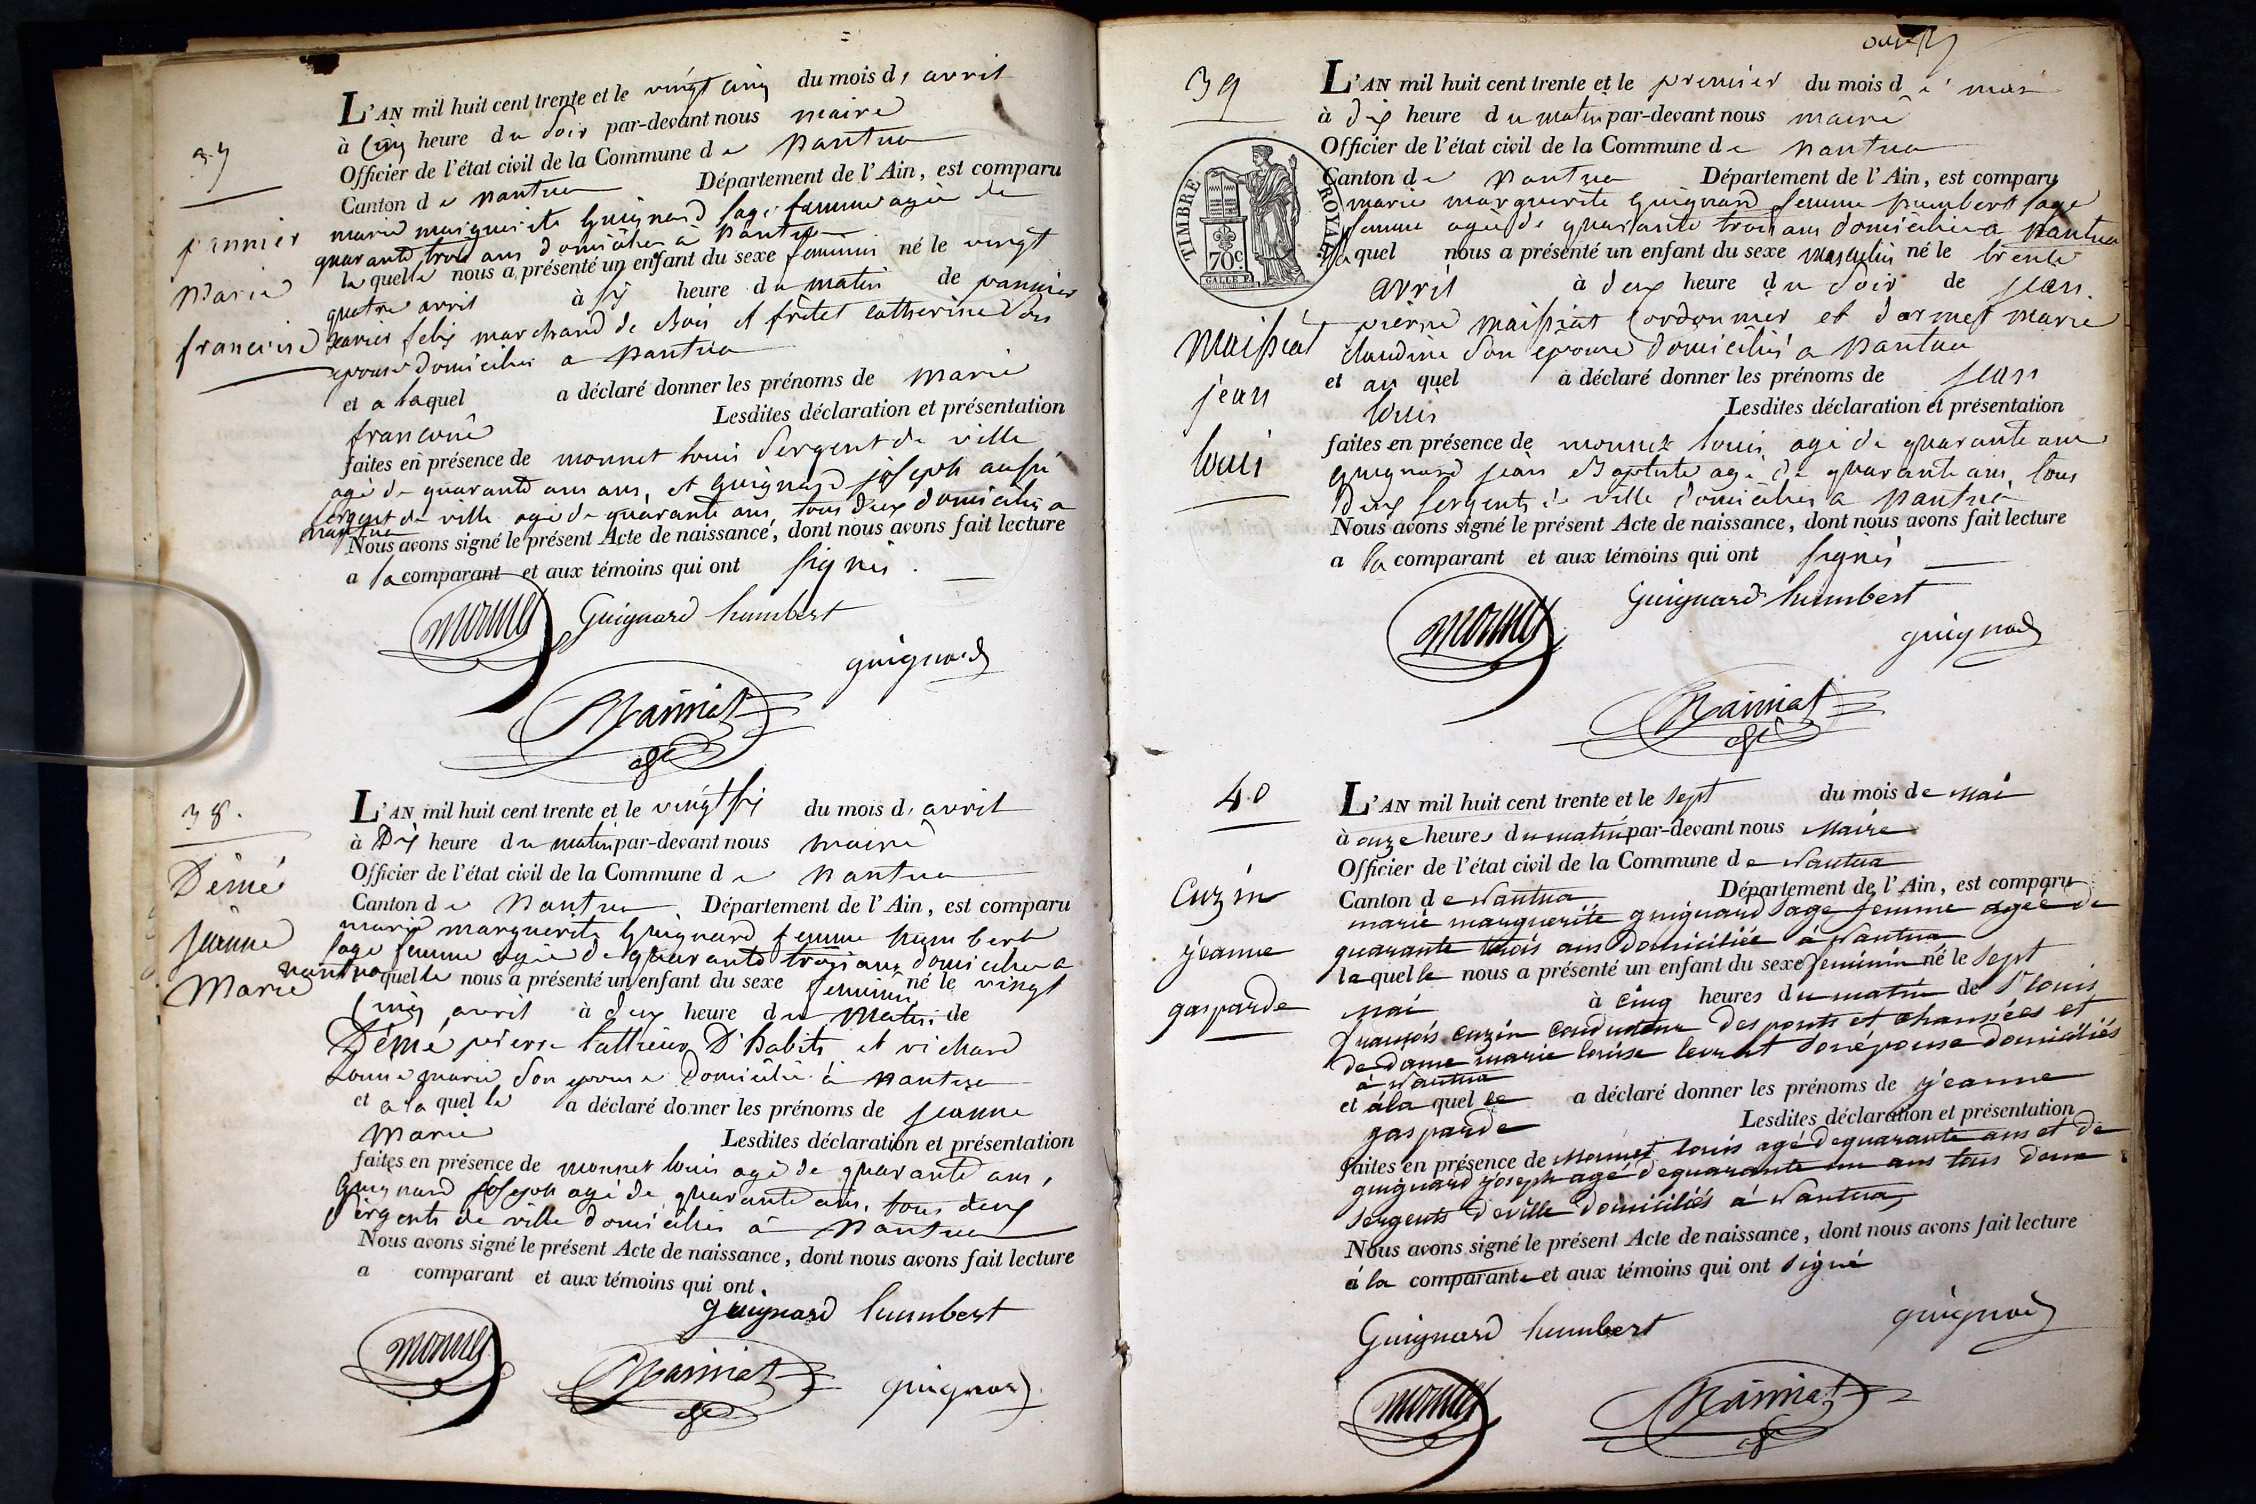 37
pannier
Marie
francoise
L'AN mil huit cent trente et le vingt cinq du mois d' avril
à Cinq heure du soir par-devant nous maire
Officier de l'état civil de la Commune de nantua
Canton de nantua Département de l'Ain, est comparu
marie marguerite guignard sage femme agée de
quarante trois ans domiciliée à nantua
laquelle nous a présenté un enfant du sexe feminin né le vingt
quatre avril à six heure du matin de pannier
xavier felix marchand de Bois et frêtet catherine son
epouse domiciliés a nantua
et a laquel a déclaré donner les prénoms de Marie
francoise Lesdites déclaration et présentation
faites en présence de monnet louis sergent de ville
agé de quarante ans, et guignard joseph aussi
sergent de ville agé de quarante ans, tous deux domiciliés a
nantua
Nous avons signé le présent Acte de naissance, dont nous avons fait lecture
a la comparant et aux témoins qui ont signés.
monnet Guignard humbert
guignard
38.
Dêmé
jeanne
Marie
L'AN mil huit cent trente et le vingt six du mois d' avril
à Dix heure du matin par-devant nous maire
Officier de l'état civil de la Commune de nantua
Canton de Nantua Département de l'Ain, est comparu
marie marguerite guignard femme humbert
sage femme agée de quarante trois ans domiciliée a
nantua laquelle nous a présenté un enfant du sexe feminin né le vingt
Cinq avril à deux heure du Matin de
Dêmé pierre tailleur D'habits et vichard
marie son epouse Domiciliés à nantua
et a la quelle a déclaré donner les prénoms de jeanne
Marie Lesdites déclaration et présentation
faites en présence de monnet louis agé de quarante ans,
guignard joseph agé de quarante ans, tous deux
sergents de ville domiciliés à nantua
Nous avons signé le présent Acte de naissance, dont nous avons fait lecture
a comparant et aux témoins qui ont.
guignard humbert
monnet guignard
39
TIMBRE ROYAL
70c
Maissiat
jean
louis
L'AN mil huit cent trente et le premier du mois de mai
à dix heure du matin par-devant nous maire
Officier de l'état civil de la Commune de nantua
Canton de nantua Département de l'Ain, est comparu
marie marguerite guignard femme humbert sage
femme agée de quarante trois ans domiciliée a nantua
laquel nous a présenté un enfant du sexe masculin né le trente
avril à deux heure du soir de jean
pierre Maissiat Cordonnier et darmet marie
claudine son epouse domiciliés a nantua
et au quel a déclaré donner les prénoms de jean
louis Lesdites déclaration et présentation
faites en présence de monnet louis agé de quarante ans
guignard jean Baptiste agé de quarante ans, tous
deux sergents de ville domiciliés a nantua
Nous avons signé le présent Acte de naissance, dont nous avons fait lecture
a la comparant et aux témoins qui ont signés
Guignard humbert
monnet guignard
40
Cuzin
jeanne
gasparde
L'AN mil huit cent trente et le sept du mois de Mai
à onze heures du matin par-devant nous Maire
Officier de l'état civil de la Commune de Nantua
Canton de Nantua Département de l'Ain, est comparu
marie marguerite guignard sage femme agée de
quarante trois ans domiciliée à Nantua
laquelle nous a présenté un enfant du sexe feminin né le sept
Mai à cinq heures du matin de Sr louis
françois cuzin conducteur des ponts et chaussées et
de dame marie louise levrat son épouse domiciliés
à Nantua
et à la quelle a déclaré donner les prénoms de jeanne
gasparde Lesdites déclaration et présentation
faites en présence de Monnet louis agé de quarante ans et de
guignard joseph agé de quarante un ans tous deux
sergents de ville domiciliés à Nantua
Nous avons signé le présent Acte de naissance, dont nous avons fait lecture
à la comparante et aux témoins qui ont signé
Guignard humbert guignard
monnet